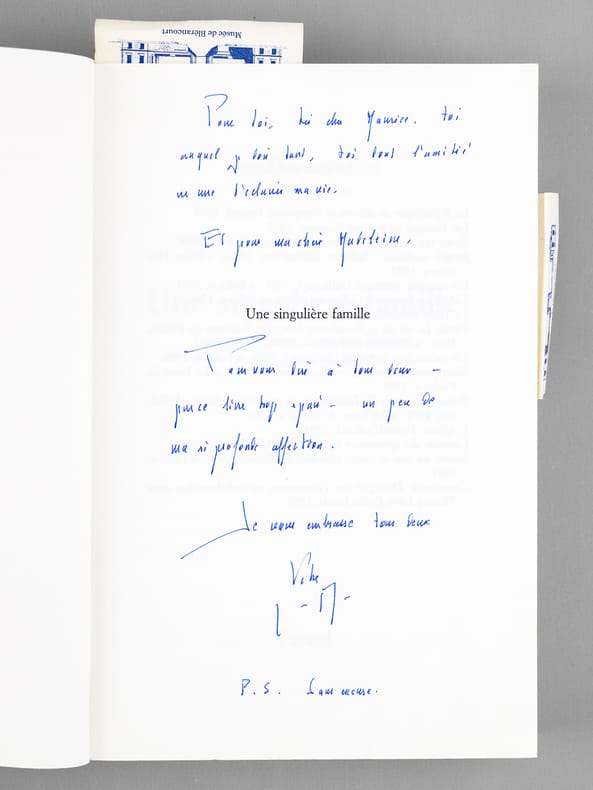 Musée de Blérancourt
Pour toi, très cher Maurice. Toi
auquel je dois tant, toi dont l'amitié
a
ma vie.
Et pour ma chère Madeleine,
Une singulière famille
Pour vous dire à tous deux –
par ce livre trop épais – un peu de
ma si profonde affection.
Je vous embrasse tous deux
Votre
P.S. Sans excuse.